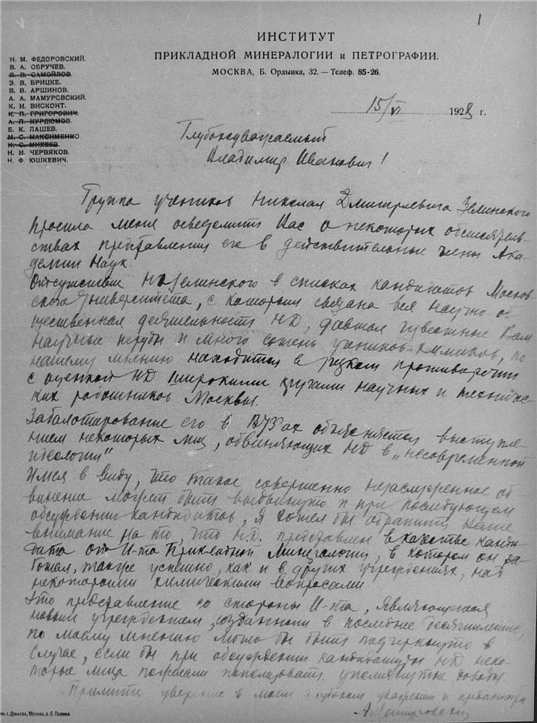 1
ИНСТИТУТ
ПРИКЛАДНОЙ МИНЕРАЛОГИИ и ПЕТРОГРАФИИ.
МОСКВА, Б. Ордынка, 32. — Телеф. 85-26.
Н. М. ФЕДОРОВСКИЙ.
В. А. ОБРУЧЕВ.
Я. В. САМОЙЛОВ.
Э. В. БРИЦКЕ.
В. В. АРШИНОВ.
А. А. МАМУРОВСКИЙ.
К. И. ВИСКОНТ.
К. П. ГРИГОРОВИЧ.
А. П. КУРДЮМОВ.
Е. К. ЛАШЕВ.
М. С. МАКСИМЕНКО.
Н. С. МИХЕЕВ.
Н. И. ЧЕРВЯКОВ.
Н. Ф. ЮШКЕВИЧ.
15/VI 1928 г.
Глубокоуважаемый
Владимир Иванович!
Группа учеников Николая Дмитриевича Зелинского
просила меня осведомить Вас о некоторых обстоятель
ствах представления его в действительные члены Ака
демии Наук.
Отсутствие НД Зелинского в списках кандидатов Москов
ского Университета, с которым связана вся научно об
щественная деятельность НД, давшая известные Вам
научные труды и много сотен учеников-химиков, по
нашему мнению находится в резком противоречии
с оценкой НД широкими кругами научных и техничес
ких работников Москвы.
Забаллотирование его в ВУЗ'ах объясняется выступле
нием некоторых лиц, обвиняющих НД в „несовременной
идеологии"
Имея в виду, что такое совершенно незаслуженное об
винение может быть выдвинуто и при последующем
обсуждении кандидатов, я хотел бы обратить Ваше
внимание на то, что Н.Д. представлен в качестве канди
дата от И-та Прикладной Минералогии, в котором он ра
ботал, также успешно, как и в других учреждениях, над
некоторыми химическими вопросами.
Это представление со стороны И-та, являющегося
новым учреждением, созданным в последнее десятилетие,
по моему мнению могло бы быть подчеркнуто в
случае, если бы при обсуждении кандидатуры НД неко
торые лица пожелали использовать упомянутые доводы
Примите уверение в моем глубоком уважении и преданности